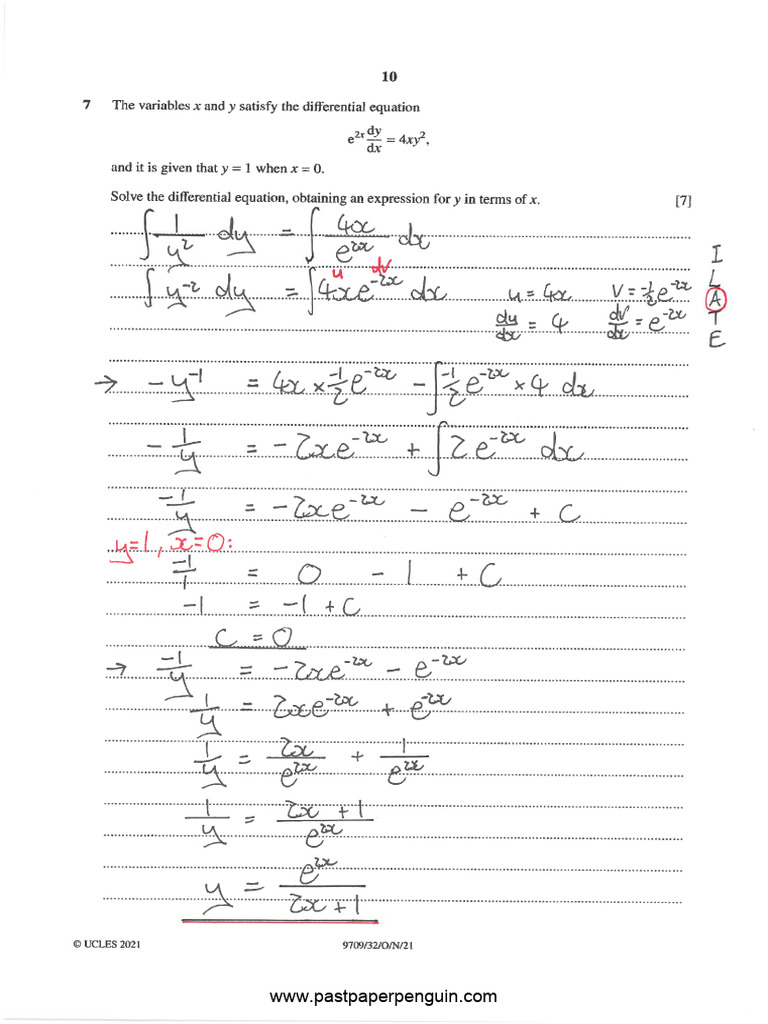 10
7 The variables x and y satisfy the differential equation
e^{2x} dy/dx = 4xy²,
and it is given that y = 1 when x = 0.
Solve the differential equation, obtaining an expression for y in terms of x. [7]
∫ 1/y² dy = ∫ 4x/e^{2x} dx
u dv
∫ y^{-2} dy = ∫ 4xe^{-2x} dx
u = 4x v = -1/2 e^{-2x}
du/dx = 4 dv/dx = e^{-2x}
I
L
A
T
E
→ -y^{-1} = 4x × -1/2 e^{-2x} - ∫ -1/2 e^{-2x} × 4 dx
-1/y = -2xe^{-2x} + ∫ 2e^{-2x} dx
-1/y = -2xe^{-2x} - e^{-2x} + C
y=1, x=0:
-1/1 = 0 - 1 + C
-1 = -1 + C
C = 0
→ -1/y = -2xe^{-2x} - e^{-2x}
1/y = 2xe^{-2x} + e^{-2x}
1/y = 2x/e^{2x} + 1/e^{2x}
1/y = (2x + 1)/e^{2x}
y = e^{2x}/(2x + 1)
© UCLES 2021 9709/32/O/N/21
www.pastpaperpenguin.com